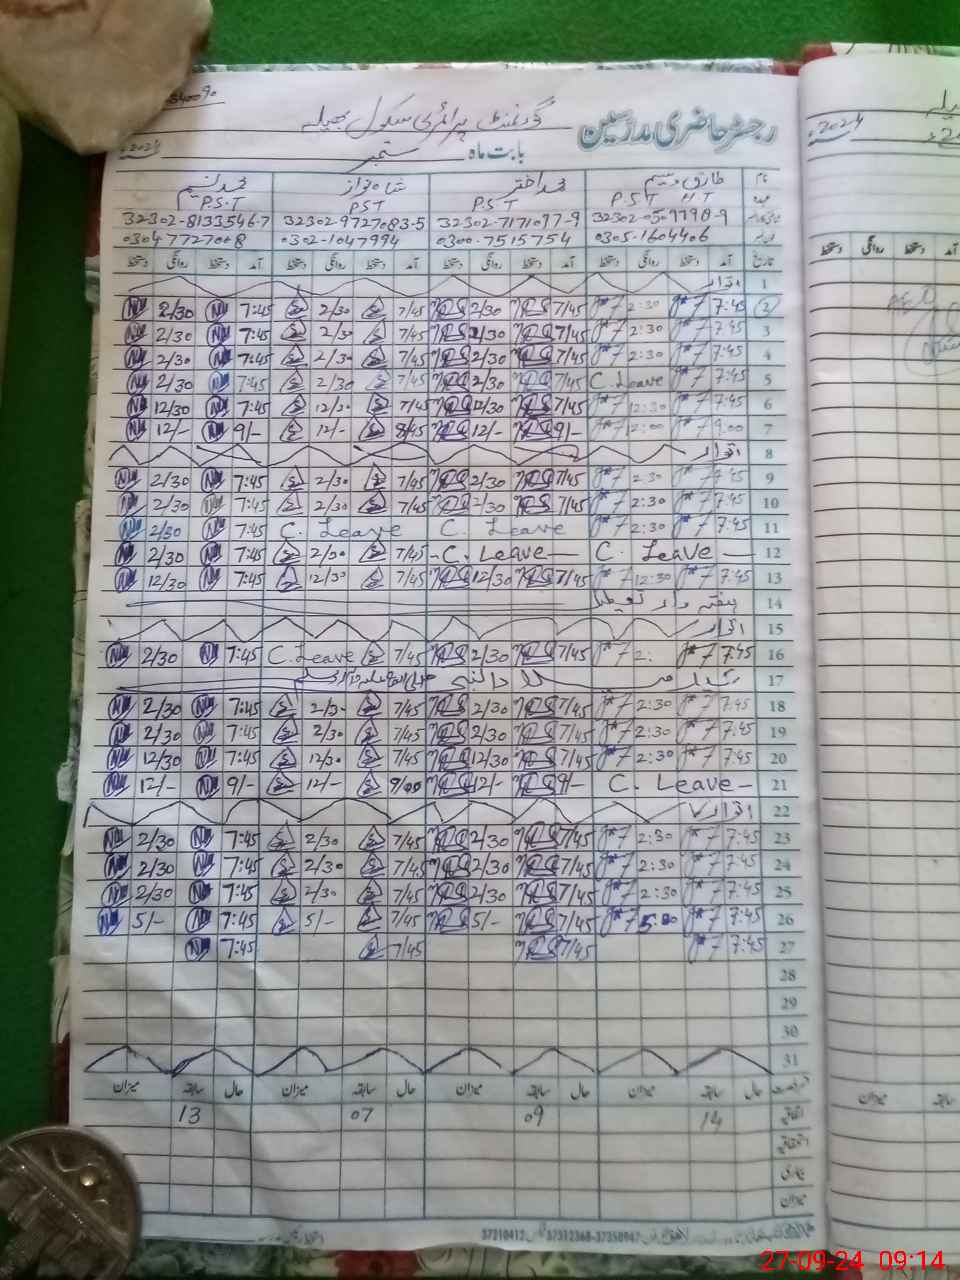 رجسٹر حاضری مدرسین گورنمنٹ پرائمری سکول
بابت ماہ ستمبر 2024ء
نام طارق وسیم محمد اختر شاہ نواز محمد نسیم
عہدہ P.S.T H.T P.S.T PST P.S.T
32302-7171097-9 32302-9727083-5 32302-8133546-7
0305-1604406 0300-7515754 0302-1047994 0304 7727008
تاریخ آمد دستخط روانگی دستخط آمد دستخط روانگی دستخط آمد دستخط روانگی دستخط آمد دستخط روانگی دستخط
1 اتوار
2 7:45 2:30 7/45 2/30 7/45 2/30 7:45 2/30
3 7:45 2:30 7/45 2/30 7/45 2/30 7:45 2/30
4 7:45 2:30 7/45 2/30 7/45 2/30 7:45 2/30
5 7:45 C.Leave 7/45 2/30 7/45 2/30 7:45 2/30
6 7:45 12:30 7/45 12/30 7/45 12/30 7:45 12/30
7 9:00 12:00 9/- 12/- 12/- 9/- 12/-
8 اتوار
9 7:45 2:30 7/45 2/30 7/45 2/30 7:45 2/30
10 7:45 2:30 7/45 2/30 7/45 2/30 7:45 2/30
11 7:45 2:30 C. Leave C. Leave 7:45 2/30
12 C. Leave C. Leave 7/45 2/30 7:45 2/30
13 7:45 12:30 7/45 12/30 7/45 12/30 7:45 12/30
14 ہفتہ وار تعطیل
15 اتوار
16 7:45 2: 7/45 2/30 7/45 C.Leave 7:45 2/30
17 میلاد النبی صلی اللہ علیہ وآلہ وسلم
18 7:45 2:30 7/45 2/30 7/45 2/30 7:45 2/30
19 7:45 2:30 7/45 2/30 7/45 2/30 7:45 2/30
20 7:45 2:30 7/45 12/30 7/45 12/30 7:45 12/30
21 C. Leave 9/- 12/- 9/00 12/- 9/- 12/-
22 اتوار
23 7:45 2:30 7/45 2/30 7/45 2/30 7:45 2/30
24 7:45 2:30 7/45 2/30 7/45 2/30 7:45 2/30
25 7:45 2:30 7/45 2/30 7/45 2/30 7:45 2/30
26 7:45 5:00 7/45 5/- 7/45 5/- 7:45 5/-
27 7:45 7/45 7/45 7:45
28
29
30
31
رخصت حال سابقہ میزان حال سابقہ میزان حال سابقہ میزان حال سابقہ میزان
اتفاقیہ 14 09 07 13
بیماری
میزان
37312368-37350947 37210412
27-09-24 09:14